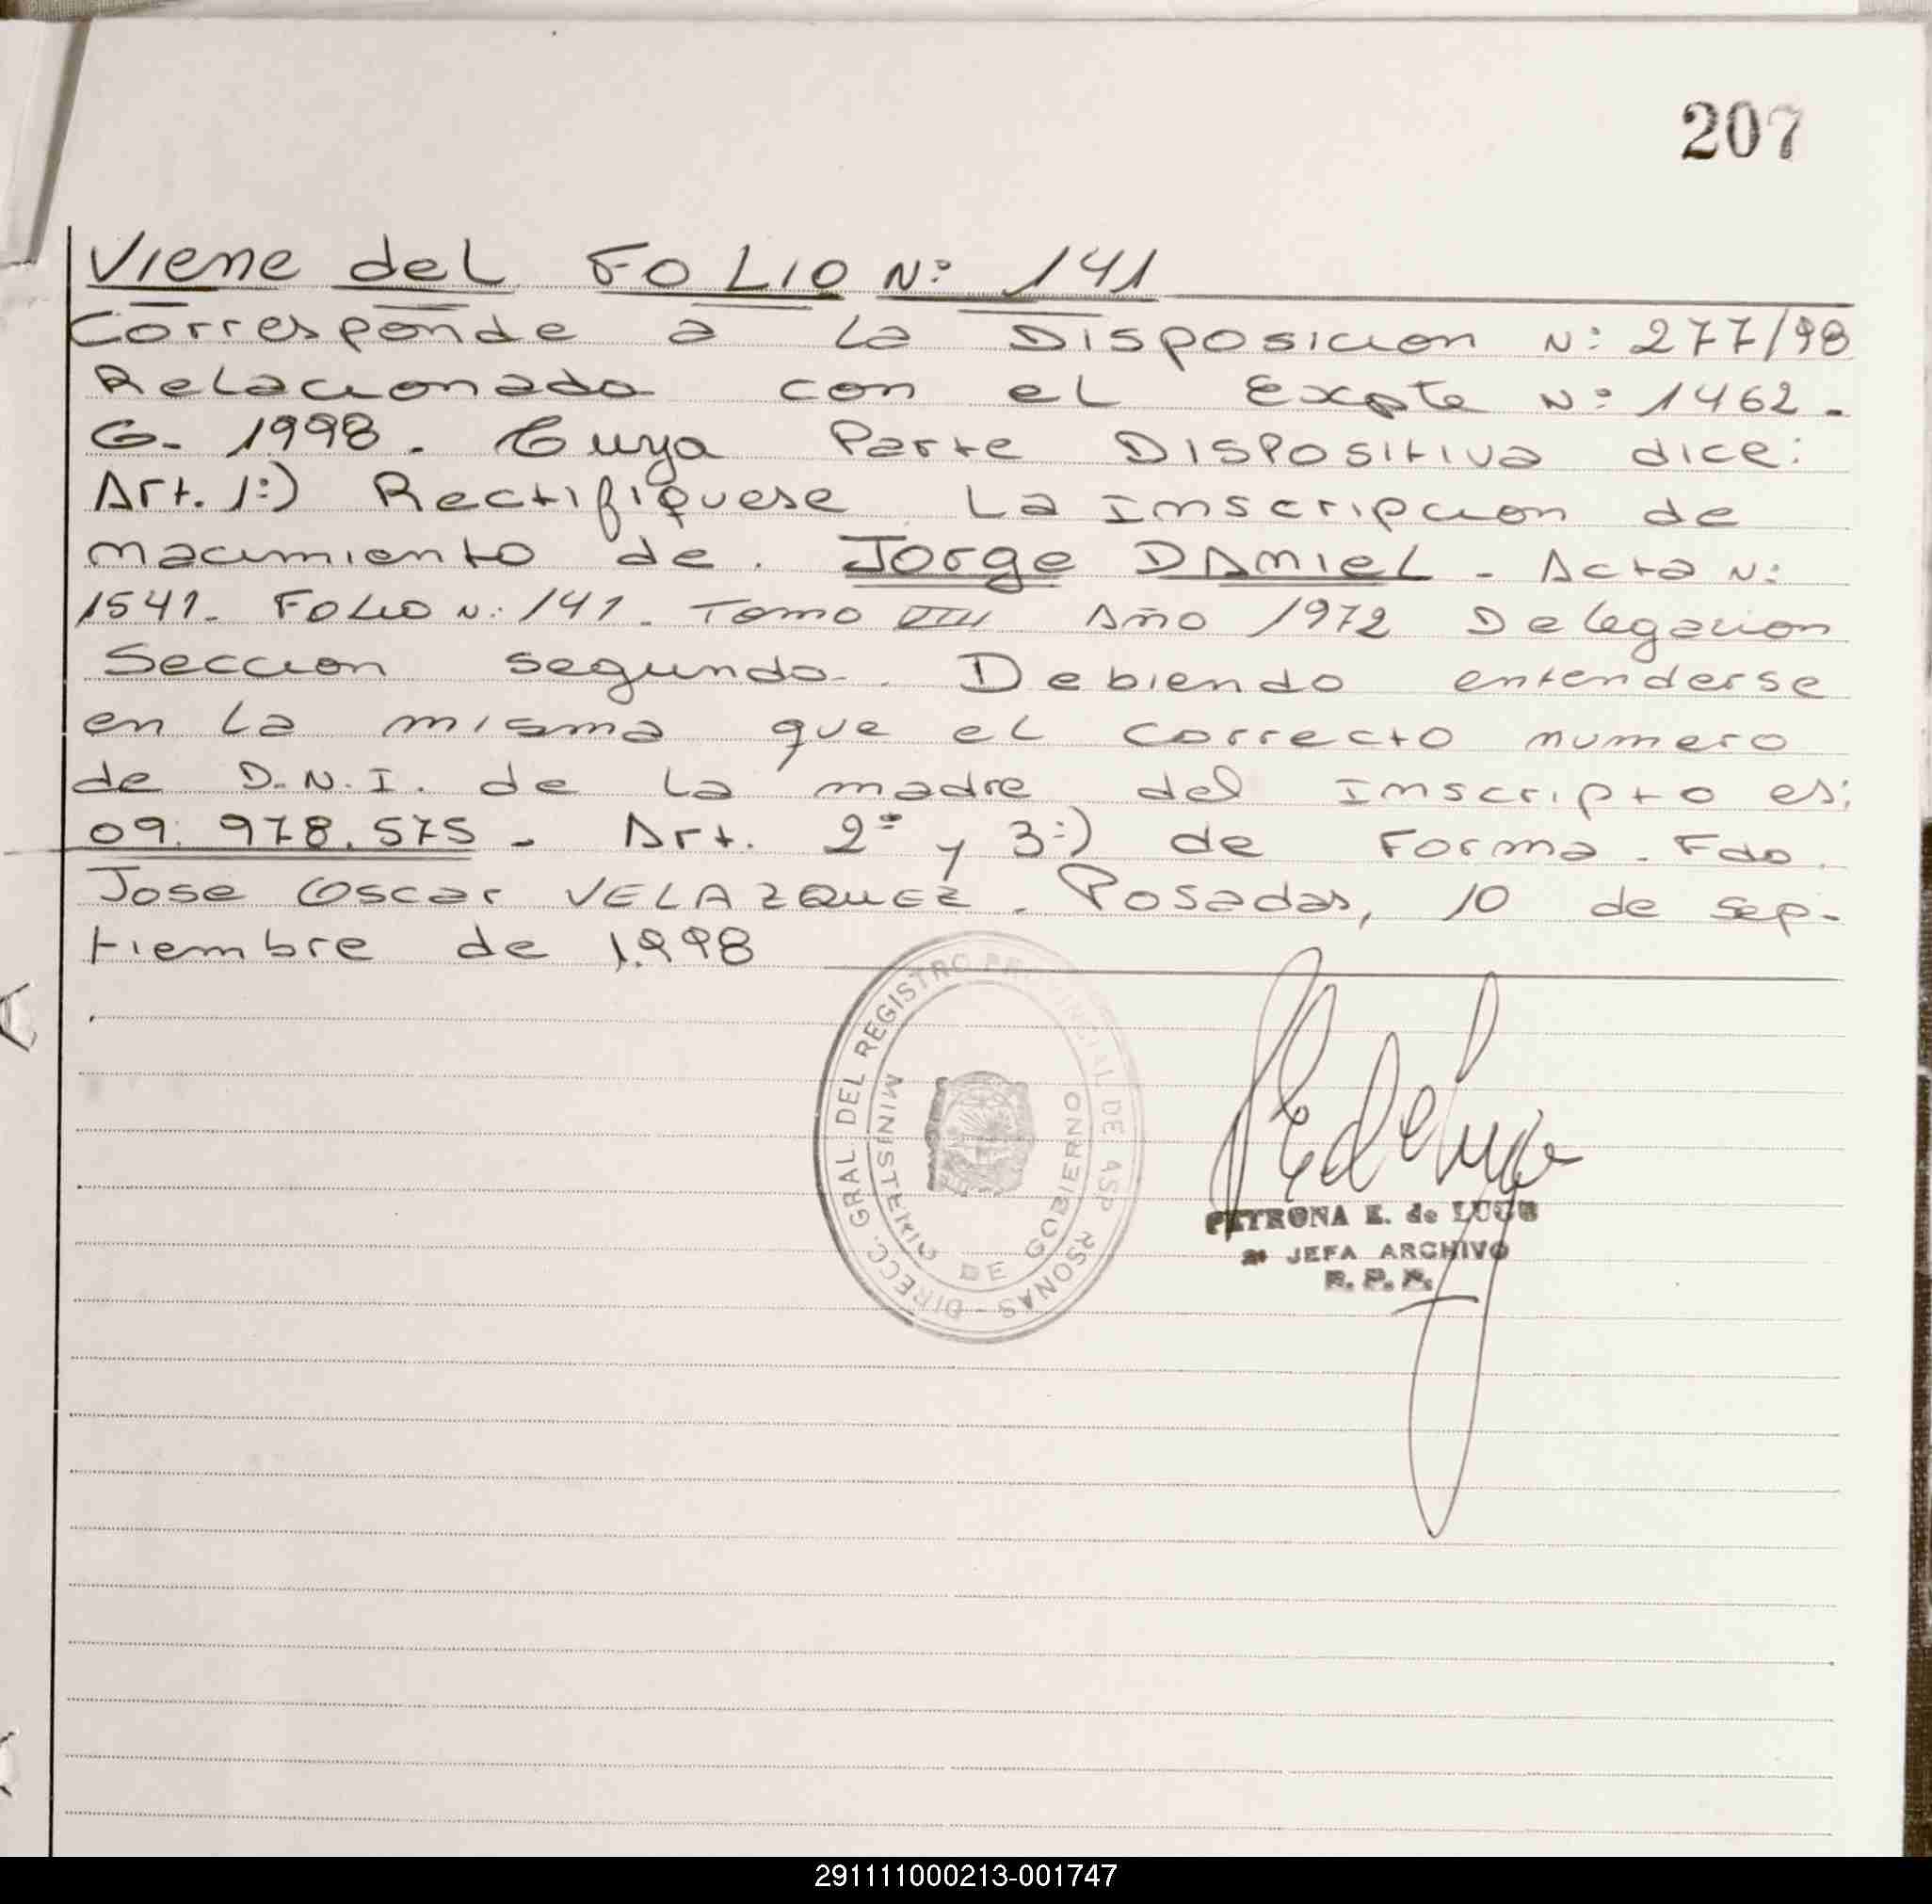 207
Viene del FOLIO N: 141
Corresponde a la Disposicion N: 277/98
Relacionada con el Expte N: 1462-
G- 1998. Cuya Parte Dispositiva dice:
Art. 1:) Rectifiquese La Inscripcion de
nacimiento de. Jorge DANIEL - Acta N:
1541- Folio N: 141- Tomo VIII Año 1972 Delegacion
Seccion segunda. Debiendo entenderse
en la misma que el correcto numero
de D.N.I. de la madre del Inscripto es:
09.978.575- Art. 2º y 3:) de Forma. Fdo.
Jose Oscar VELAZQUEZ. Posadas, 10 de sep-
tiembre de 1.998
DIRECC. GRAL. DEL REGISTRO PROVINCIAL DE AS PERSONAS -
MINISTERIO DE GOBIERNO
PETRONA E. de LUGO
JEFA ARCHIVO
R. P. P.
291111000213-001747